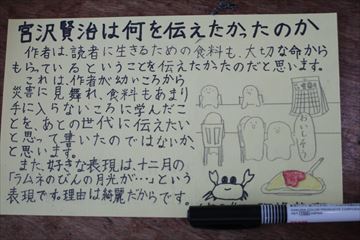 宮沢賢治は何を伝えたかったのか
作者は、読者に生きるための食料も、大切な命から
もらっているということを伝えたかったのだと思います。
これは、作者が幼いころから
災害に見舞れ、食料もあまり
手に入らないころに学んだこ
とを、あとの世代に伝えたい
と思って書いたのではないか、
と思います。
また、好きな表現は、十二月の
「ラムネのびんの月光が…」という
表現です。理由は綺麗だからです。
おいしそう